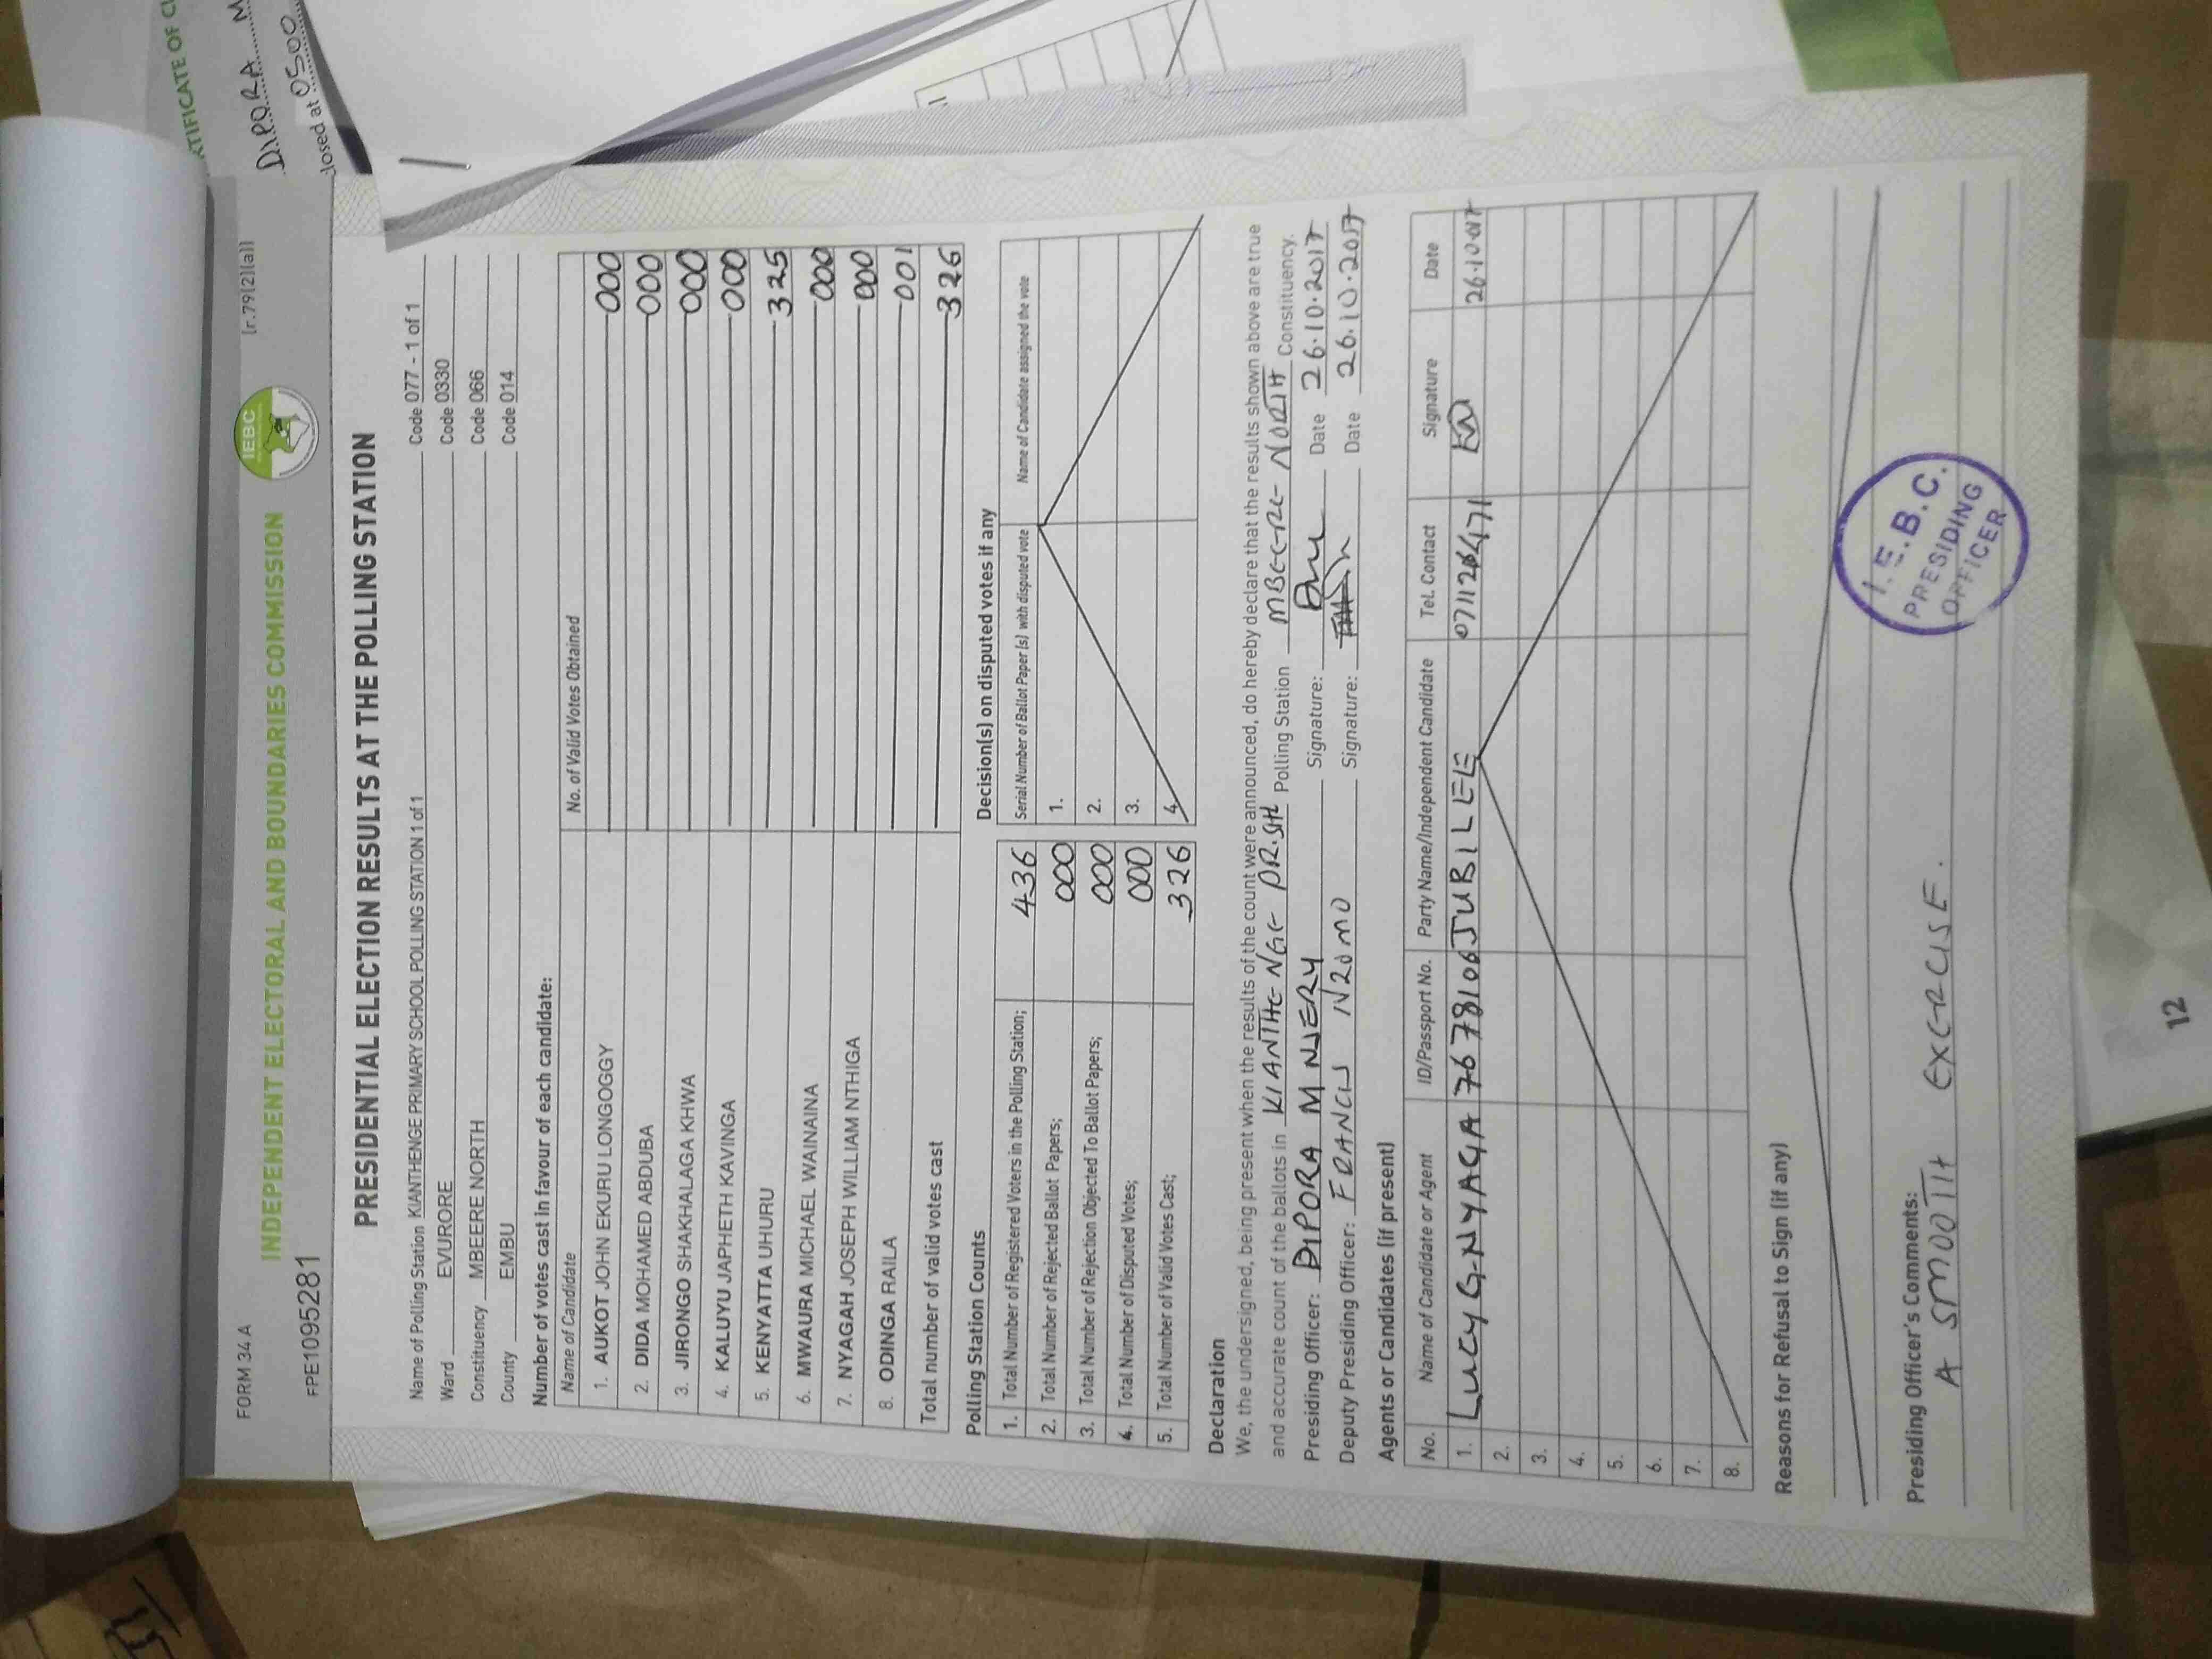 FORM 34 A
INDEPENDENT ELECTORAL AND BOUNDARIES COMMISSION
IEBC
(r.79(2)(a))
FPE1095281
PRESIDENTIAL ELECTION RESULTS AT THE POLLING STATION
Name of Polling Station KIANTHENGE PRIMARY SCHOOL POLLING STATION 1 of 1 Code 077 - 1 of 1
Ward EVURORE Code 0330
Constituency MBEERE NORTH Code 066
County EMBU Code 014
Number of votes cast in favour of each candidate:
Name of Candidate No. of Valid Votes Obtained
1. AUKOT JOHN EKURU LONGOGGY 000
2. DIDA MOHAMED ABDUBA 000
3. JIRONGO SHAKHALAGA KHWA 000
4. KALUYU JAPHETH KAVINGA 000
5. KENYATTA UHURU 325
6. MWAURA MICHAEL WAINAINA 000
7. NYAGAH JOSEPH WILLIAM NTHIGA 000
8. ODINGA RAILA 001
Total number of valid votes cast 326
Polling Station Counts
1. Total Number of Registered Voters in the Polling Station; 436
2. Total Number of Rejected Ballot Papers; 000
3. Total Number of Rejection Objected To Ballot Papers; 000
4. Total Number of Disputed Votes; 000
5. Total Number of Valid Votes Cast; 326
Decision(s) on disputed votes if any
Serial Number of Ballot Paper (s) with disputed vote Name of Candidate assigned the vote
1.
2.
3.
4.
Declaration
We, the undersigned, being present when the results of the count were announced, do hereby declare that the results shown above are true
and accurate count of the ballots in KIANTHENGE PR. SH Polling Station MBEERE NORTH Constituency.
Presiding Officer: DIPORA M NJERY Signature: Date 26.10.2017
Deputy Presiding Officer: FRANCIS Signature: Date 26.10.2017
Agents or Candidates (if present)
No. Name of Candidate or Agent ID/Passport No. Party Name/Independent Candidate Tel. Contact Signature Date
1. LUCY G. NYAGA 7678106 JUBILEE 26.10.017
2.
3.
4.
5.
6.
7.
8.
Reasons for Refusal to Sign (if any)
Presiding Officer's Comments:
A SMOOTH EXERCISE.
I.E.B.C.
PRESIDING
OFFICER
DIPORA M
closed at 0500
12